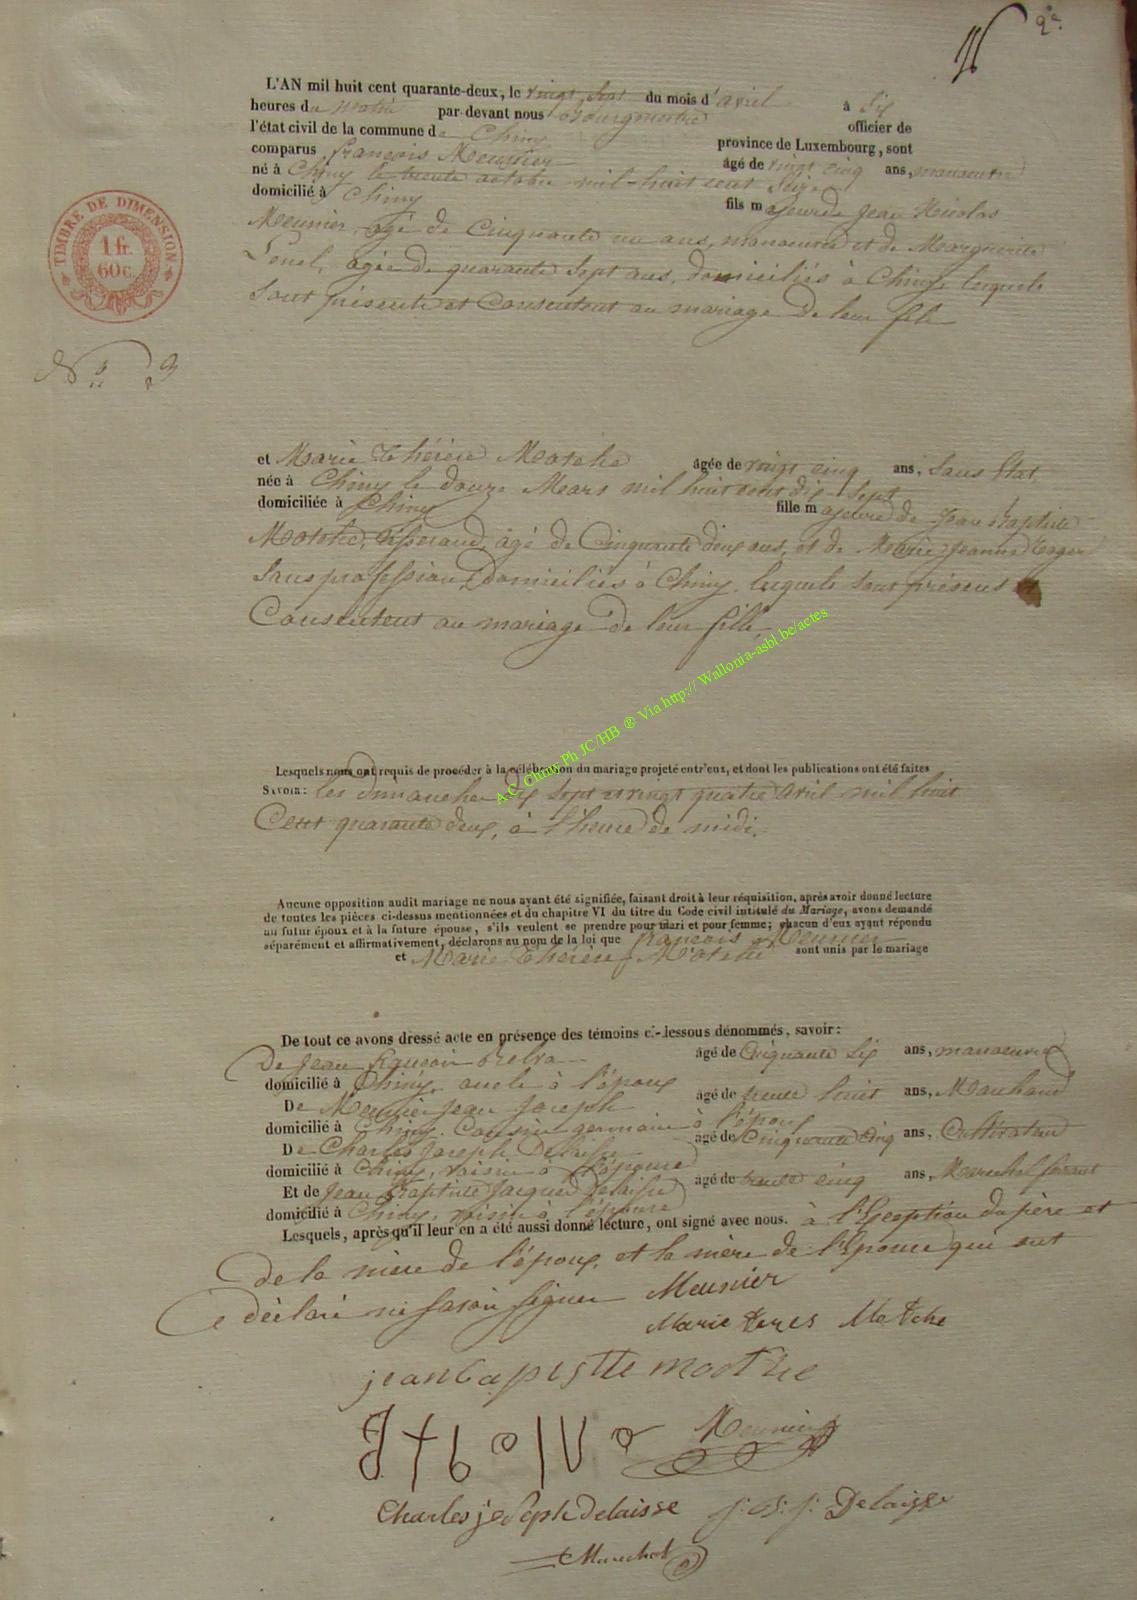 2e.
L'AN mil huit cent quarante-deux, le vingt sept du mois d'avril à six
heures du matin par devant nous Bourgmestre officier de
l'état civil de la commune de Chiny province de Luxembourg, sont
comparus françois Meunier âgé de vingt cinq ans, manoeuvre
né à Chiny le trente octobre mil-huit cent seize
domicilié à Chiny fils majeur de Jean Nicolas
Meunier, agé de Cinquante un ans, manoeuvre et de Marguerite
agée de quarante sept ans, domiciliés à Chiny, lesquels
sont présents et Consentent au mariage de leur fils
TIMBRE DE DIMENSION
1 fr.
60 c.
N° 9
et Marie Thérèse Motche âgée de vingt cinq ans, Sans Etat
née à Chiny le douze Mars mil huit cent dix-sept
domiciliée à Chiny fille majeure de Jean Baptiste
Motche, tisserand, âgé de Cinquante deux ans, et de Marie Jeanne
Sans profession, domiciliés à Chiny, lesquels sont présens et
Consentent au mariage de leur fille.
A.C. Chiny Ph JC/HB ® Via http:// Wallonia-asbl.be/actes
Lesquels nous ont requis de procéder à la célébration du mariage projeté entr'eux, et dont les publications ont été faites
SAVOIR: les dimanches dix sept et vingt quatre avril mil huit
Cent quarante deux, à l'heure de midi.
Aucune opposition audit mariage ne nous ayant été signifiée, faisant droit à leur réquisition, après avoir donné lecture
de toutes les pièces ci-dessus mentionnées et du chapitre VI du titre du Code civil intitulé du Mariage, avons demandé
au futur époux et à la future épouse, s'ils veulent se prendre pour mari et pour femme; chacun d'eux ayant répondu
séparément et affirmativement, déclarons au nom de la loi que françois Meunier
et Marie Thérèse Motche sont unis par le mariage
De tout ce avons dressé acte en présence des témoins ci-dessous dénommés, savoir:
De Jean françois âgé de Cinquante six ans, manoeuvre
domicilié à Chiny, oncle à l'époux
De Meunier Jean Joseph âgé de trente huit ans, Marchand
domicilié à Chiny, Cousin germain à l'époux
De Charles Joseph Delaisse âgé de Cinquante cinq ans, Cultivateur
domicilié à Chiny, voisin à l'épouse
Et de Jean Baptiste Jacques Delaisse âgé de trente cinq ans, Marechal ferrant
domicilié à Chiny, voisin à l'épouse
Lesquels, après qu'il leur en a été aussi donné lecture, ont signé avec nous. à l'Exception du père et
de la mère de l'époux, et la mère de l'Epouse qui ont
déclaré ne savoir signer Meunier
Marie teres Motche
jean bapistte motche
Meunier
Charles joseph delaisse J: B: J: Delaisse
Marechal